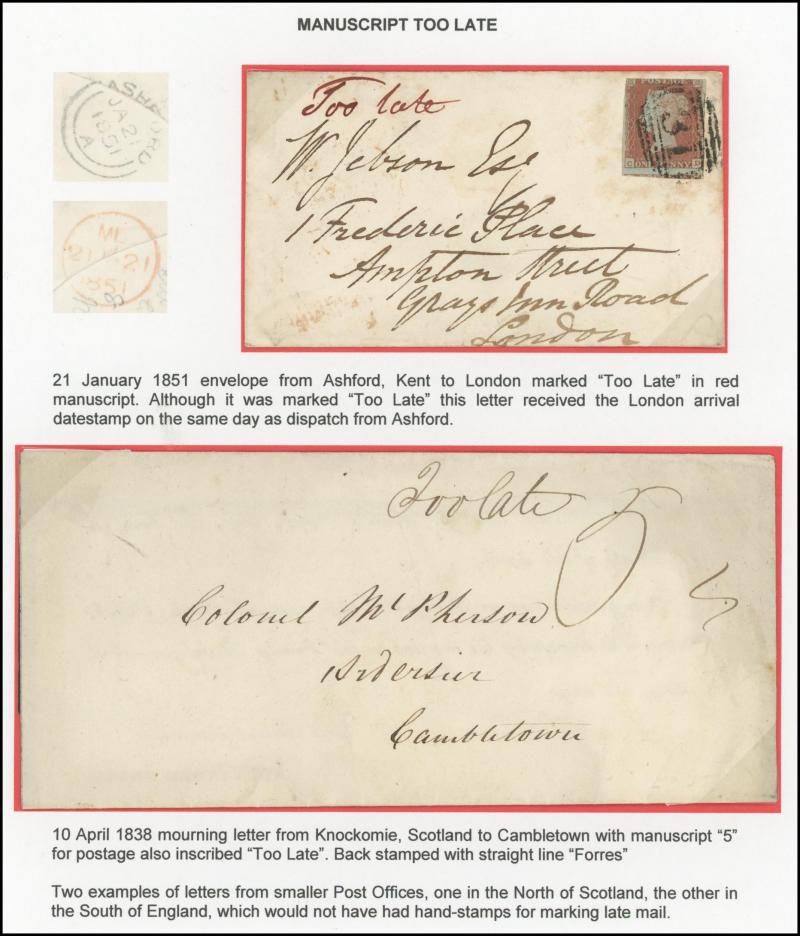 MANUSCRIPT TOO LATE
ASHFORD
JA 21
1851
A
ML
21 21
1851
Too late
W. Jebson Esq
1 Frederic Place
Ampton Street
Grays Inn Road
London
POSTAGE
ONE PENNY
31
21 January 1851 envelope from Ashford, Kent to London marked “Too Late” in red
manuscript. Although it was marked “Too Late” this letter received the London arrival
datestamp on the same day as dispatch from Ashford.
Too late
5
Colonel McPherson
Ardersier
Cambletown
10 April 1838 mourning letter from Knockomie, Scotland to Cambletown with manuscript “5”
for postage also inscribed “Too Late”. Back stamped with straight line “Forres”
Two examples of letters from smaller Post Offices, one in the North of Scotland, the other in
the South of England, which would not have had hand-stamps for marking late mail.